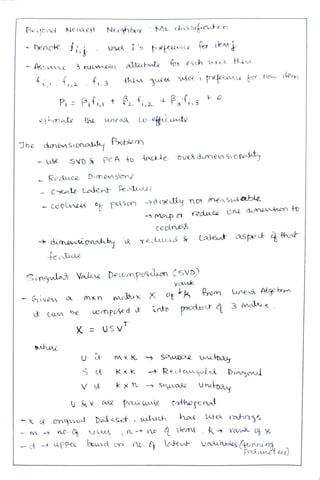 Beyond Nearest Neighbor : ML classification
- Denote fi,j user i's preference for item j
- Assume 3 numeric attribute for each user then
fi,1 fi,2 fi,3 then guess user i preference for new item
Pi = β1fi,1 + β2fi,2 + β3fi,3 + e
estimate the linear co-efficients
The dimensionality Problem
- use SVD & PCA to tackle over dimensionality
- Reduce Dimensions
- Create Latent features
- coolness of person → directly not measurable
→ map or reduce one dimension to
coolness
→ dimensionality is reduced & latent aspect of that
feature
Singular Value Decomposition (SVD)
rank
- Given a mxn matrix X of k from Linear Algebra
it can be composed it into product of 3 matrix.
X = USVT
where
U is mxk → square unitary
S is kxk → Rectangular Diagonal
V is kxn → square Unitary
U & V are pairwise orthogonal
- X is original Dataset, which has user ratings
- m → no. of users, n → no of items, k → rank of X
- d → upper bound on no. of latent variables (tunning
Parameters)